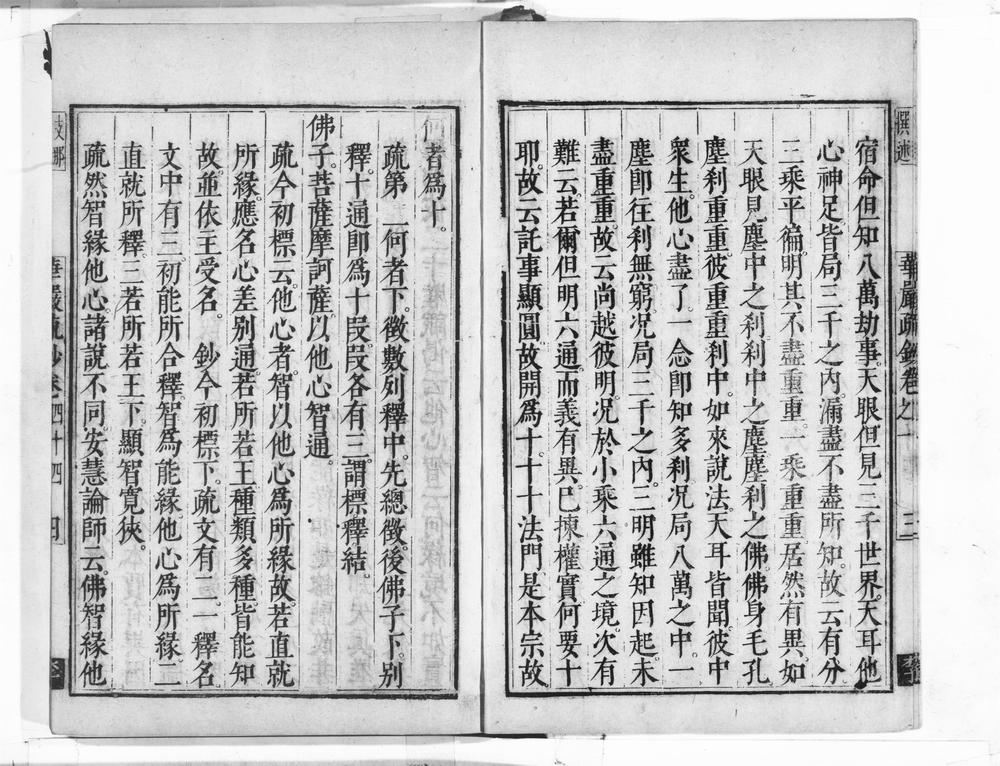 宿命但知八萬劫事天眼但見三千世界天耳他
心神足皆局三千之內漏盡不盡所知故云有分
三乘平徧明其不盡重重一乘重重居然有異如
天眼見塵中之刹刹中之塵塵刹之佛佛身毛孔
塵刹重重彼重重刹中如來說法天耳皆聞彼中
衆生他心盡了一念即知多刹况局八萬之中一
塵即往刹無窮况局三千之內三明雖知因起未
盡重重故云尚越彼明况於小乘六通之境次有
難云若爾但明六通而義有異已揀權實何要十
耶故云託事顯圓故開爲十十十法門是本宗故
何者爲十
疏第二何者下徵數列釋中先總徵後佛子下別
釋十通即爲十段段各有三謂標釋結
佛子菩薩摩訶薩以他心智通
疏今初標云他心者智以他心爲所緣故若直就
所緣應名心差別通若所若王種類多種皆能知
故並依主受名　鈔今初標下疏文有二一釋名
文中有三初能所合釋智爲能緣他心爲所緣二
直就所釋三若所若王下顯智寬狹
疏然智緣他心諸說不同安慧論師云佛智緣他
華嚴疏鈔卷四十四